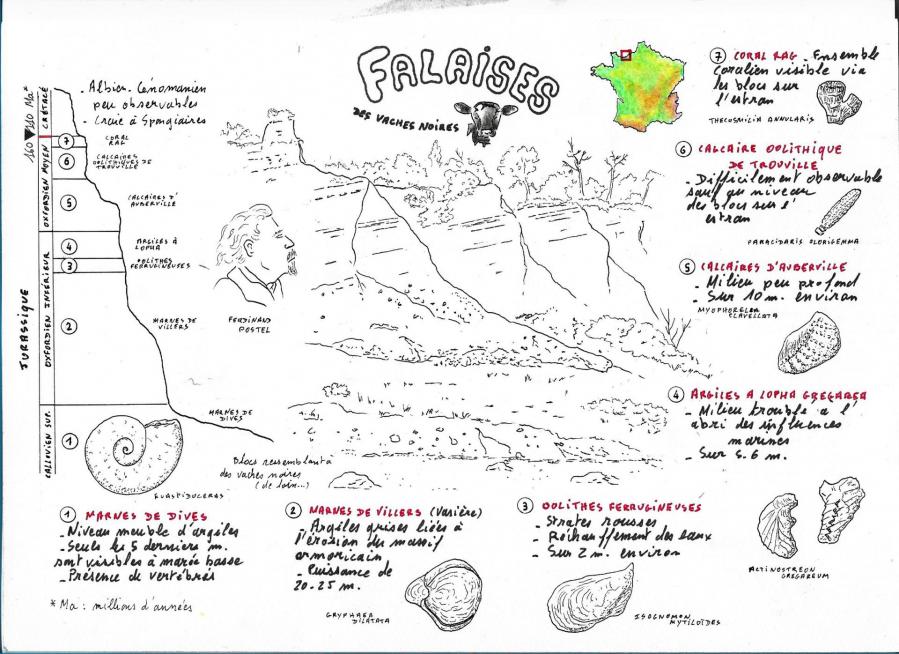 FALAISES
DES VACHES NOIRES
- Albien-Cénomanien
peu observables
- Craie à Spongiaires
160 ▼ 110 Ma*
CRÉTACÉ
OXFORDIEN MOYEN
OXFORDIEN INFÉRIEUR
CALLOVIEN SUP.
JURASSIQUE
7
CORAL
RAG
6
CALCAIRES
OOLITHIQUES DE
TROUVILLE
5
CALCAIRES D'
AUBERVILLE
4
ARGILES À
LOPHA
3
OOLITHES
FERRUGINEUSES
2
MARNES DE
VILLERS
MARNES DE
DIVES
1
EUASPIDOCERAS
FERDINAND
POSTEL
Blocs ressemblant à
des vaches noires
(de loin...)
7 CORAL RAG - Ensemble
coralien visible via
les blocs sur
l'estran
THECOSMILIA ANNULARIS
6 CALCAIRE OOLITHIQUE
DE TROUVILLE
- Difficilement observable
sauf au niveau
des blocs sur l'
estran
PARACIDARIS FLORIGEMMA
5 CALCAIRES D'AUBERVILLE
- Milieu peu profond
- Sur 10 m. environ
MYOPHORELLA
CLAVELLATA
4 ARGILES A LOPHA GREGAREA
- Milieu trouble à l'
abri des influences
marines
- Sur 5-6 m.
ACTINOSTREON
GREGAREUM
1 MARNES DE DIVES
- Niveau meuble d'argiles
- Seuls les 5 derniers m.
sont visibles à marée basse
- Présence de vertébrés
* Ma : millions d'années
2 MARNES DE VILLERS (Varière)
- Argiles grises liées à
l'érosion du massif
armoricain
- Puissance de
20-25 m.
GRYPHAEA
DILATATA
3 OOLITHES FERRUGINEUSES
- Strates rousses
- Réchauffement des eaux
- Sur 2 m. environ
ISOGNOMON
MYTILOÏDES